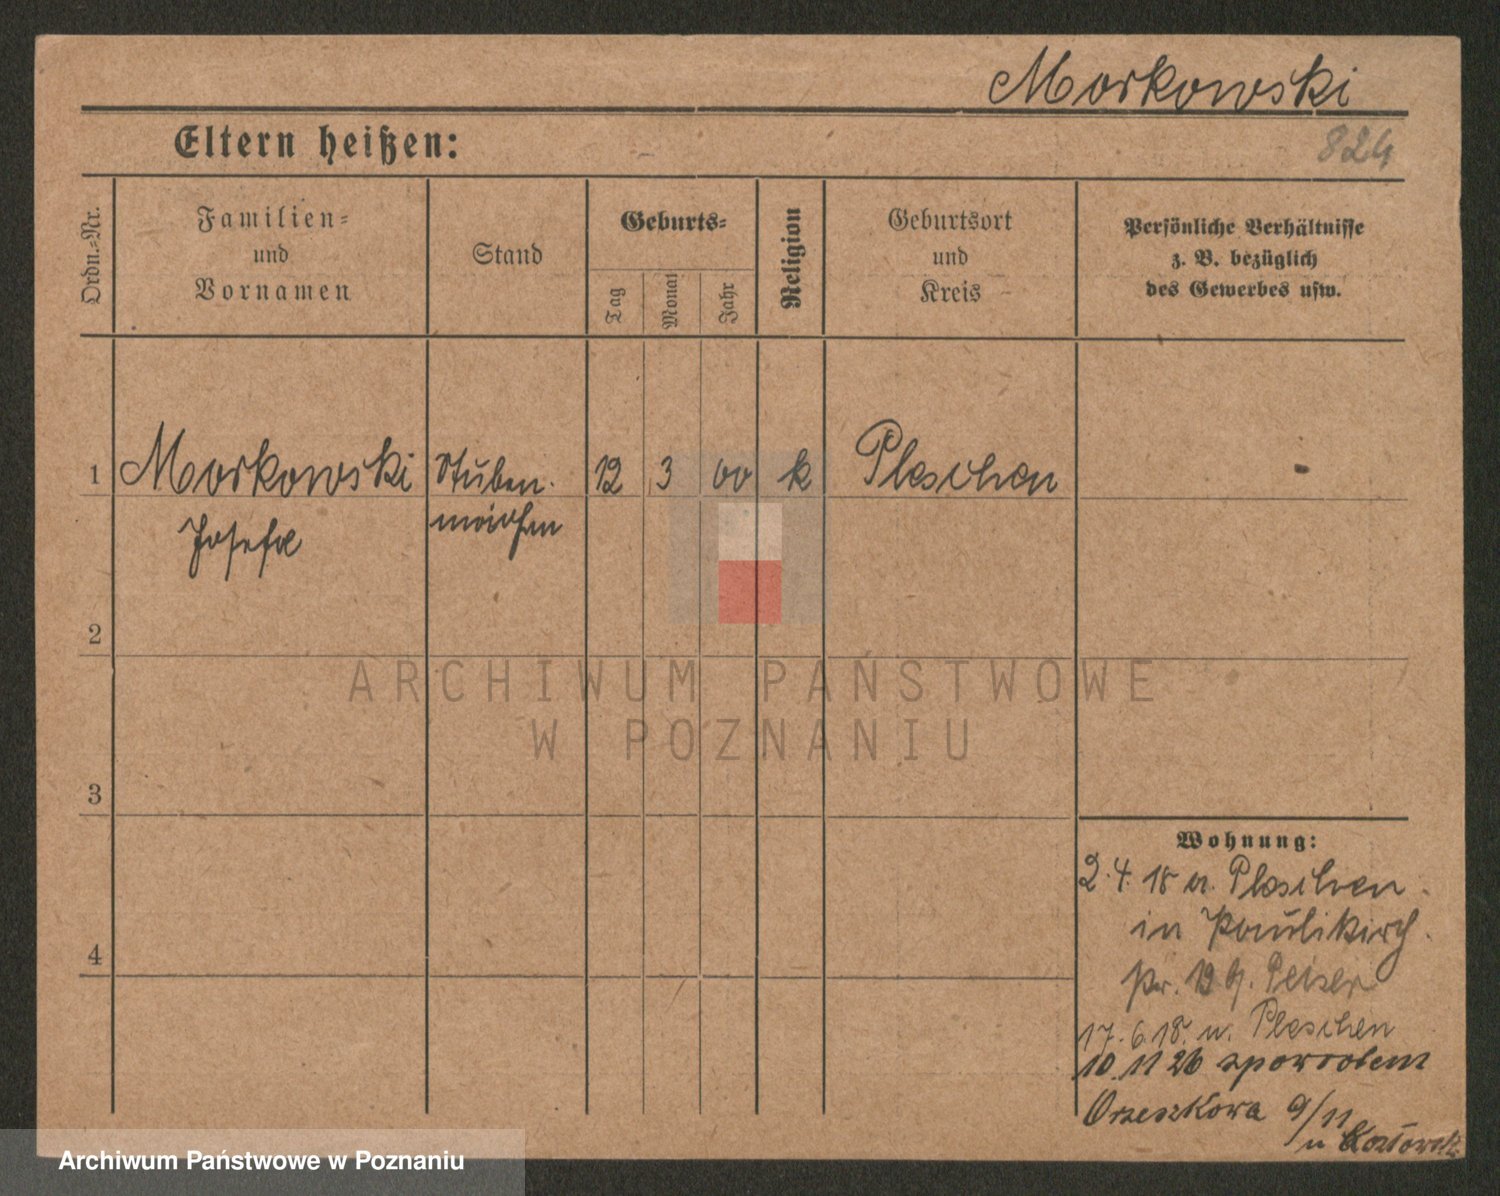 Morkowski
Eltern heißen:
824
Ordn.=Nr.
Familien=
und
Vornamen
Stand
Geburts=
Tag
Monat
Jahr
Religion
Geburtsort
und
Kreis
Persönliche Verhältnisse
z. B. bezüglich
des Gewerbes usw.
1 Morkowski Stuben. 12 3 00 k Pleschen
Josefa mädchen
2
ARCHIWUM PAŃSTWOWE
W POZNANIU
3
Wohnung:
2.4.18 Pleschen
in Paulikirch.
Peiser
17.6.18. n. Pleschen
10 11 26 z powrotem
Orzeszkowa 9/11
u
4
Archiwum Państwowe w Poznaniu